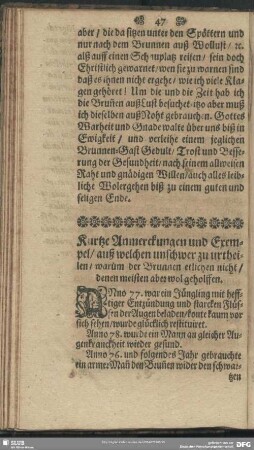 47
aber / die da sitzen unter den Spöttern und
nur nach dem Brunnen auß Wollust / ꝛc.
alß auff einen Schauplatz reisen / sein doch
Christlich gewarnet / wen sie zu warnen sind
daß es ihnen nicht ergehe / wie ich viele Kla-
gen gehöret / Um die und die Zeit hab ich
die Bruñen auß Lust besuchet / itzo aber muß
ich dieselben auß Noht gebrauchẽ. Gottes
Warheit und Gnade walte über uns biß in
Ewigkeit / und verleihe einem jeglichen
Brunnen-Gast Gedult / Trost und Besse-
rung der Gesundheit / nach seinem allweisen
Raht und gnädigen Willen / auch alles leib-
liche Wolergehen biß zu einem guten und
seligen Ende.
Kurtze Anmerckungen und Exem-
pel / auß welchen unschwer zu urthei-
len / warüm der Brunnen etlichen nicht /
denen meisten aber wol geholffen.
ANno 77. war ein Jüngling mit heff-
tiger Entzündung und starcken Flüs-
sen der Augen beladen / konte kaum vor
sich sehen / wurde glücklich restituiret.
Anno 78. wurde ein Mann an gleicher Au-
genkranckheit wieder gesund.
Anno 76. und folgendes Jahr gebrauchte
ein armer Mañ den Bruñen wider den schwar-
tzen
SLUB
DFG